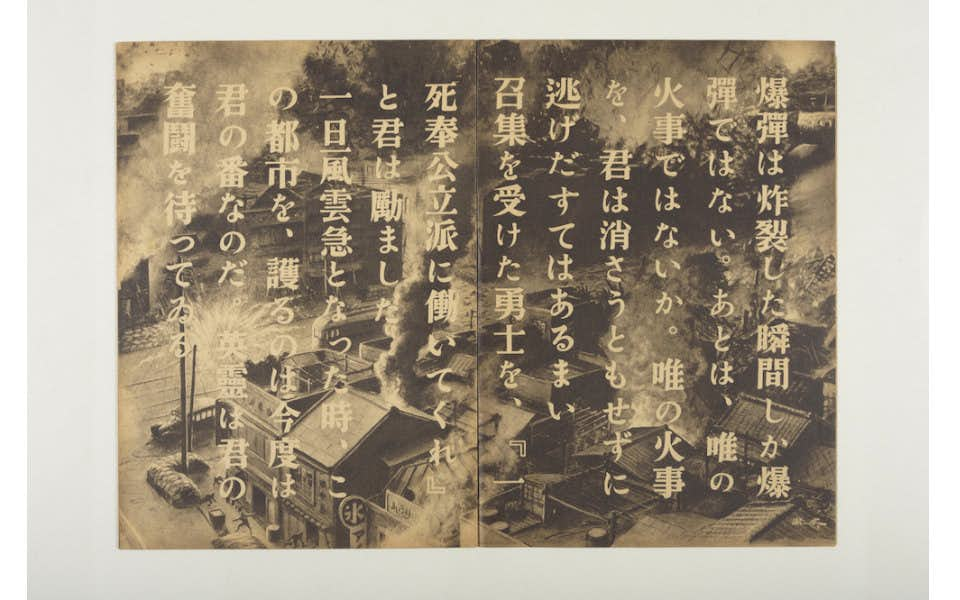 爆彈は炸裂した瞬間しか爆
彈ではない。あとは、唯の
火事ではないか。唯の火事
を、君は消さうともせずに
逃げだすてはあるまい
召集を受けた勇士を、『一
死奉公立派に働いてくれ』
と君は勵ました
一旦風雲急となつた時、こ
の都市を、護るのは今度は
君の番なのだ。英靈は君の
奮鬪を待つてゐる
氷